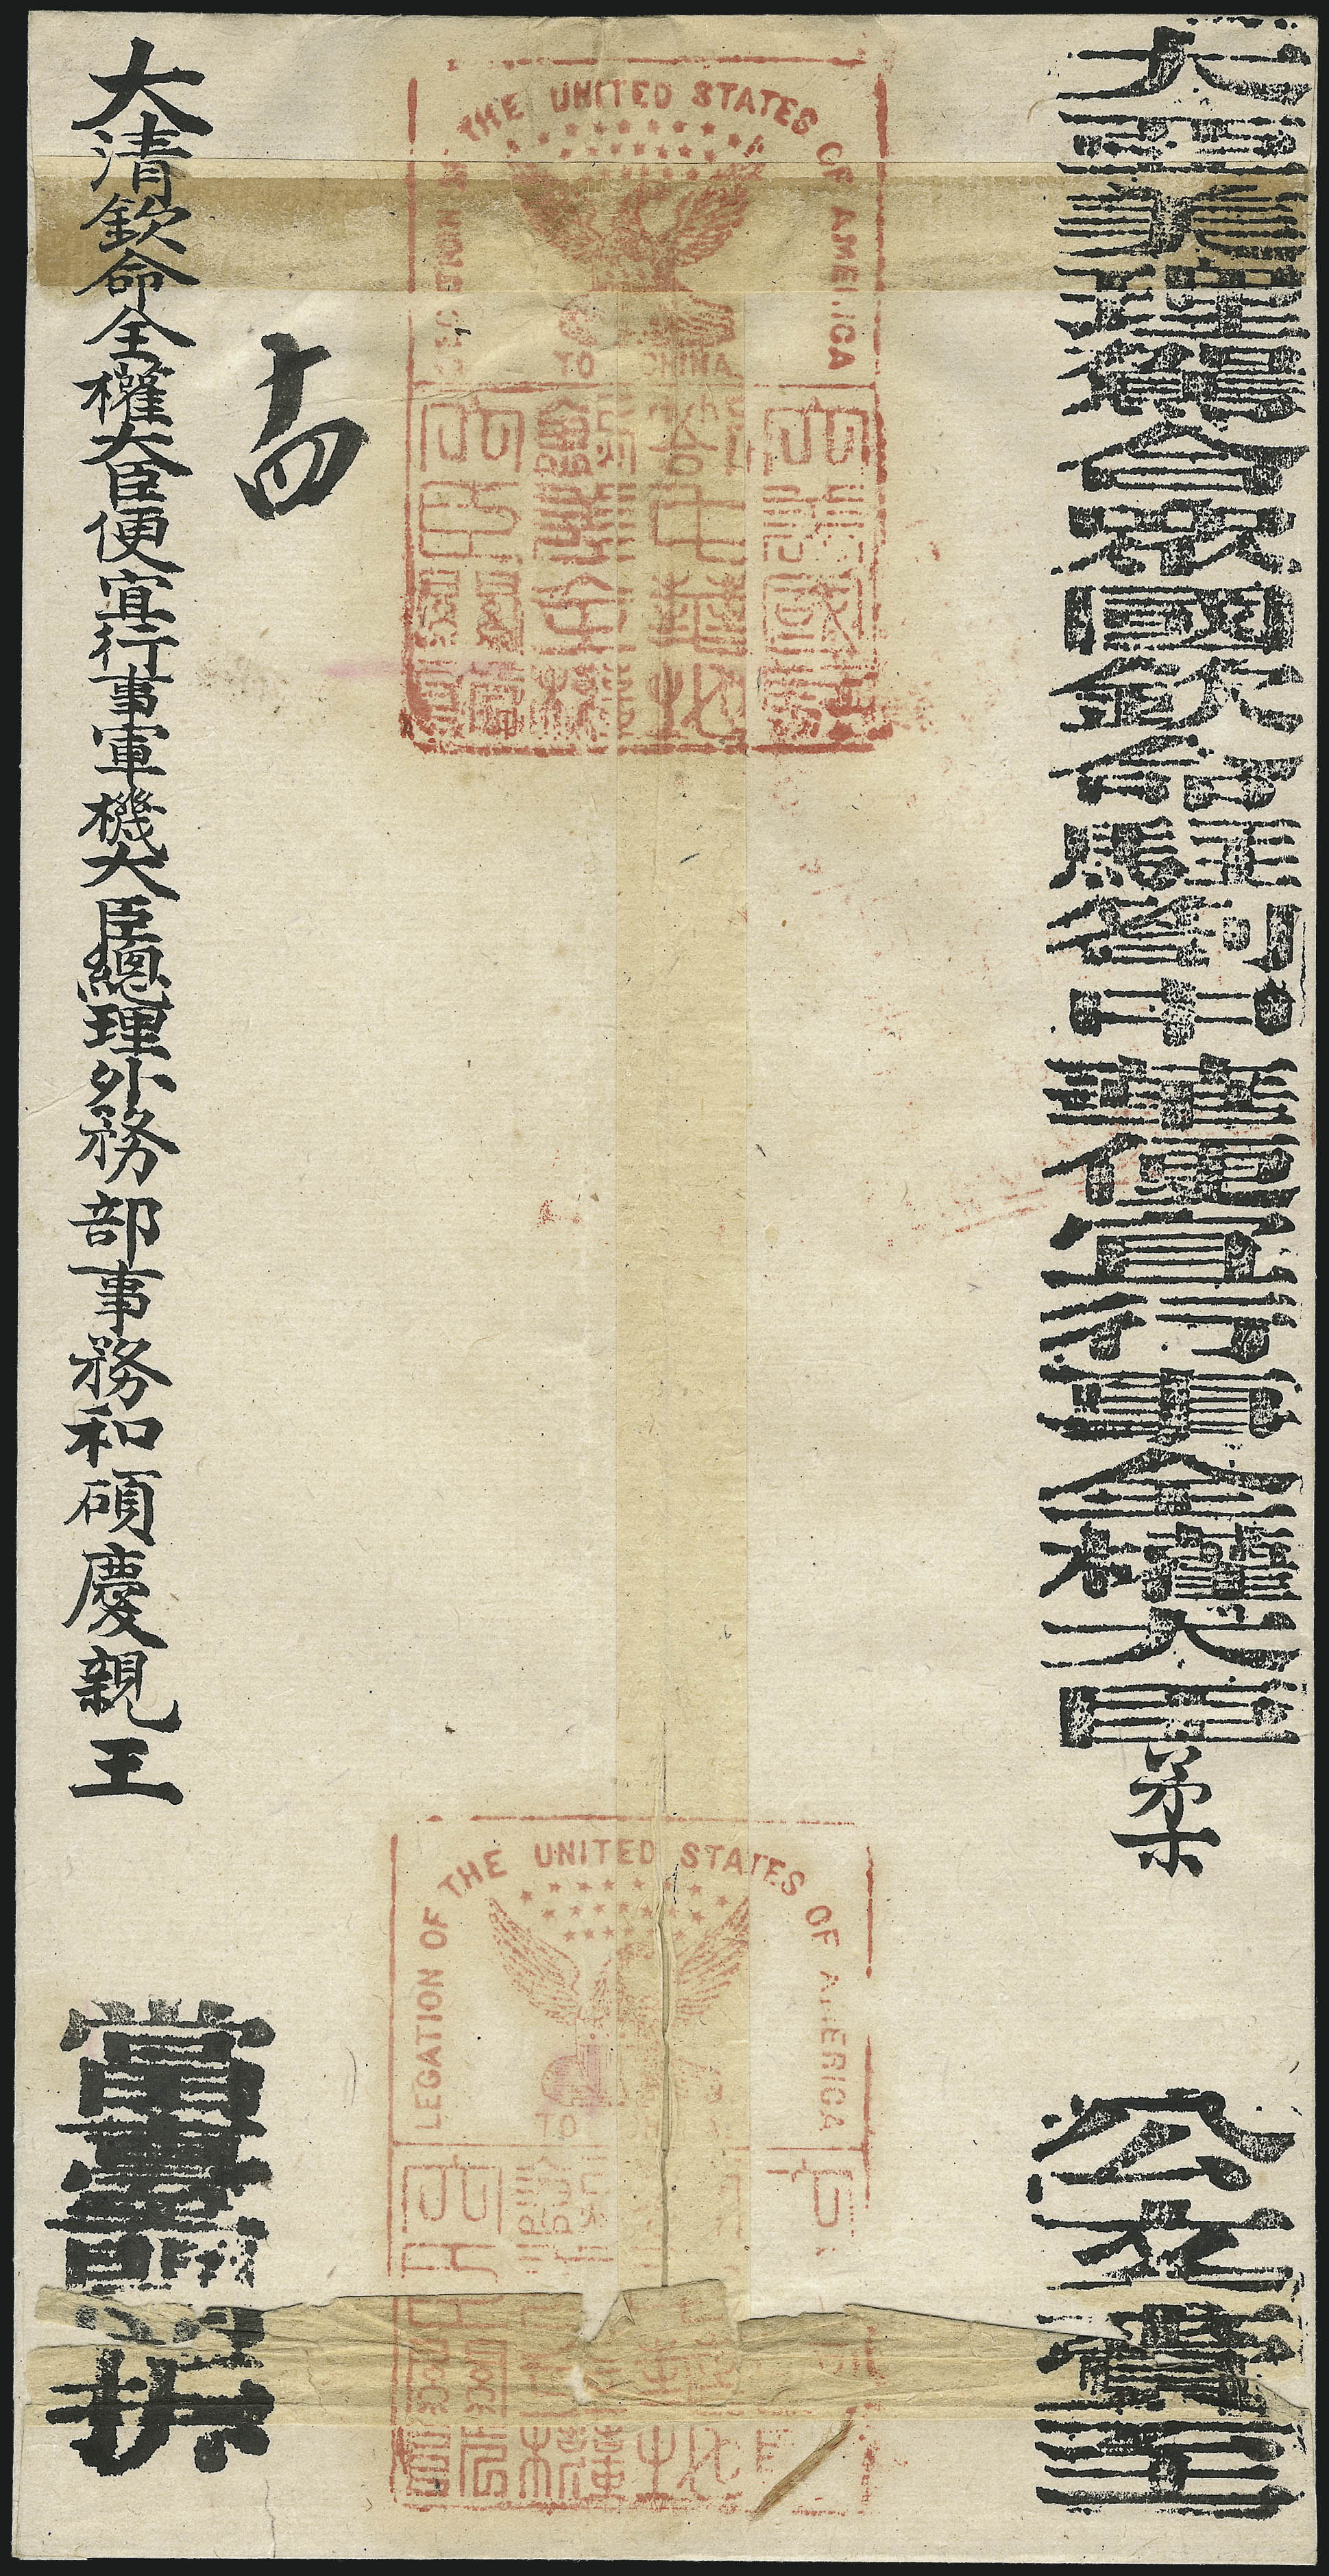 大亞美理駕合眾國欽命駐劄中華便宜行事全權大臣柔
公文賫至
THE UNITED STATES OF AMERICA
TO CHINA
大美國駐
中華
全權
大臣關防
LEGATION OF THE UNITED STATES OF AMERICA
TO
十四
大清欽命全權大臣便宜行事軍機大臣總理外務部事務和碩慶親王
當堂開拆